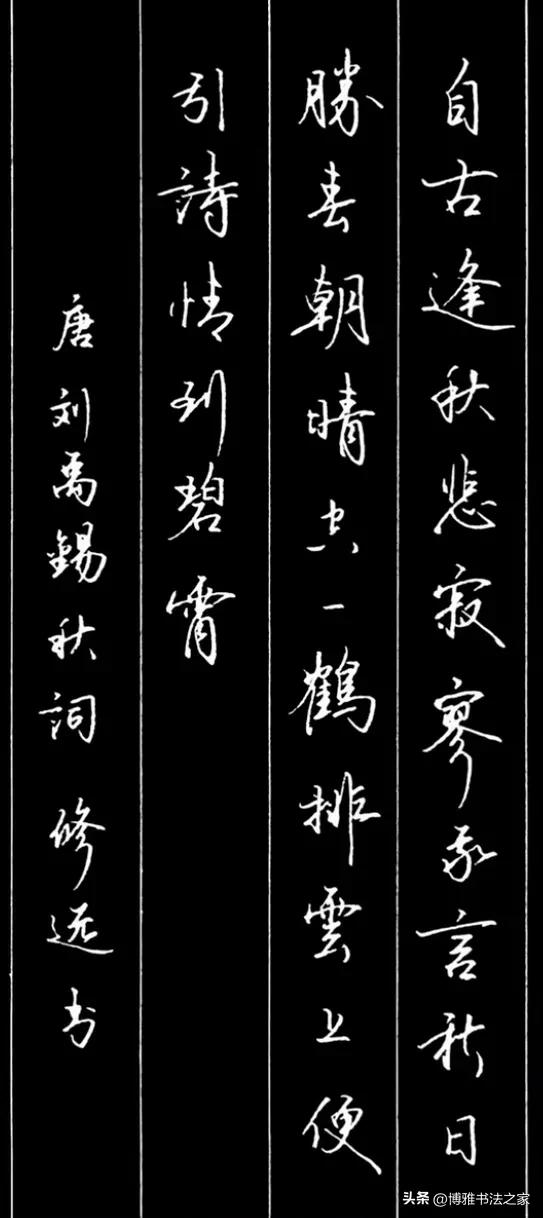 自古逢秋悲寂寥我言秋日
勝春朝晴空一鶴排雲上便
引詩情到碧霄
唐刘禹錫秋詞 修远书
头条 @博雅书法之家